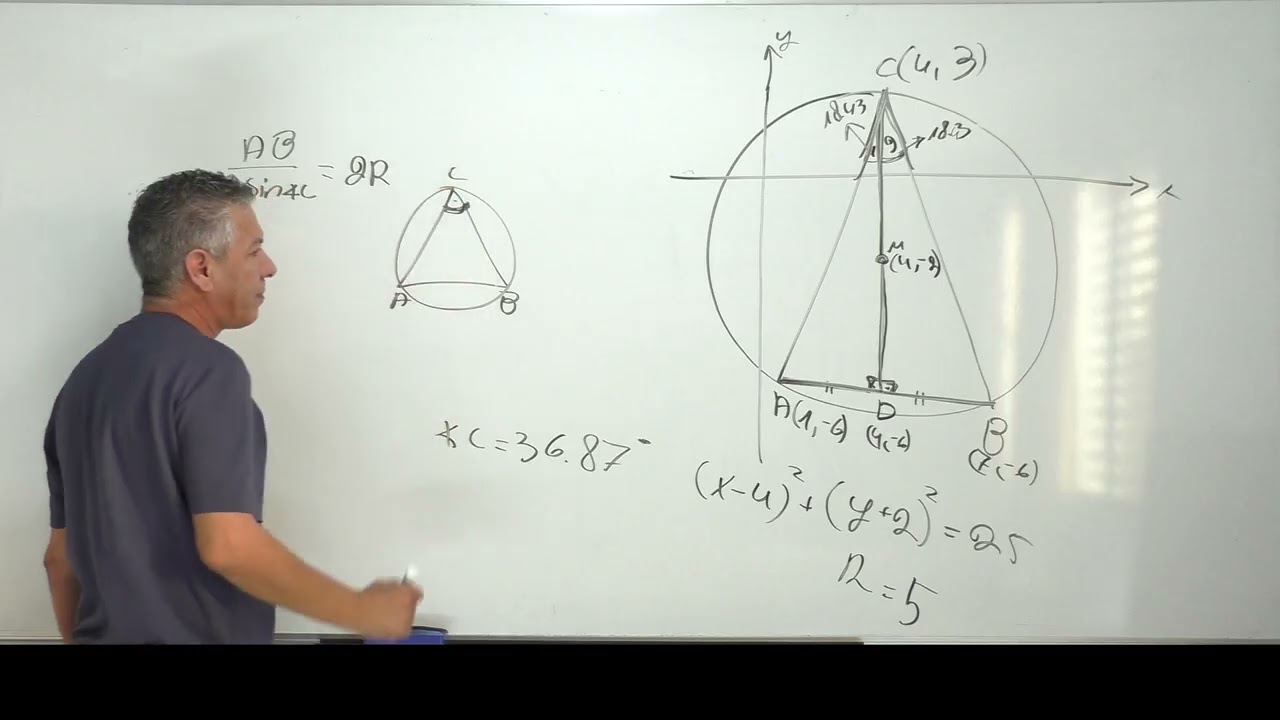 AB
sin∢C = 2R
C
A B
∢C = 36.87°
y
C(4, 3)
18.43 18.43
x
M
(4,-2)
A(1,-6) D (4,-6) B (7,-6)
(x-4)² + (y+2)² = 25
R = 5